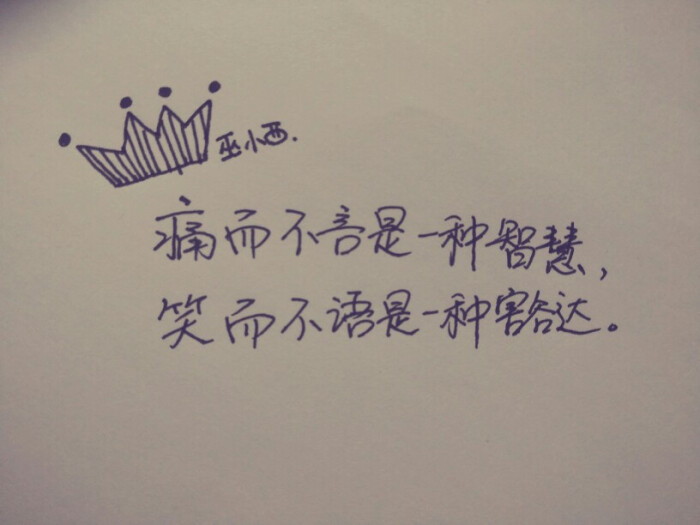 巫小西.
痛而不言是一种智慧，
笑而不语是一种豁达。